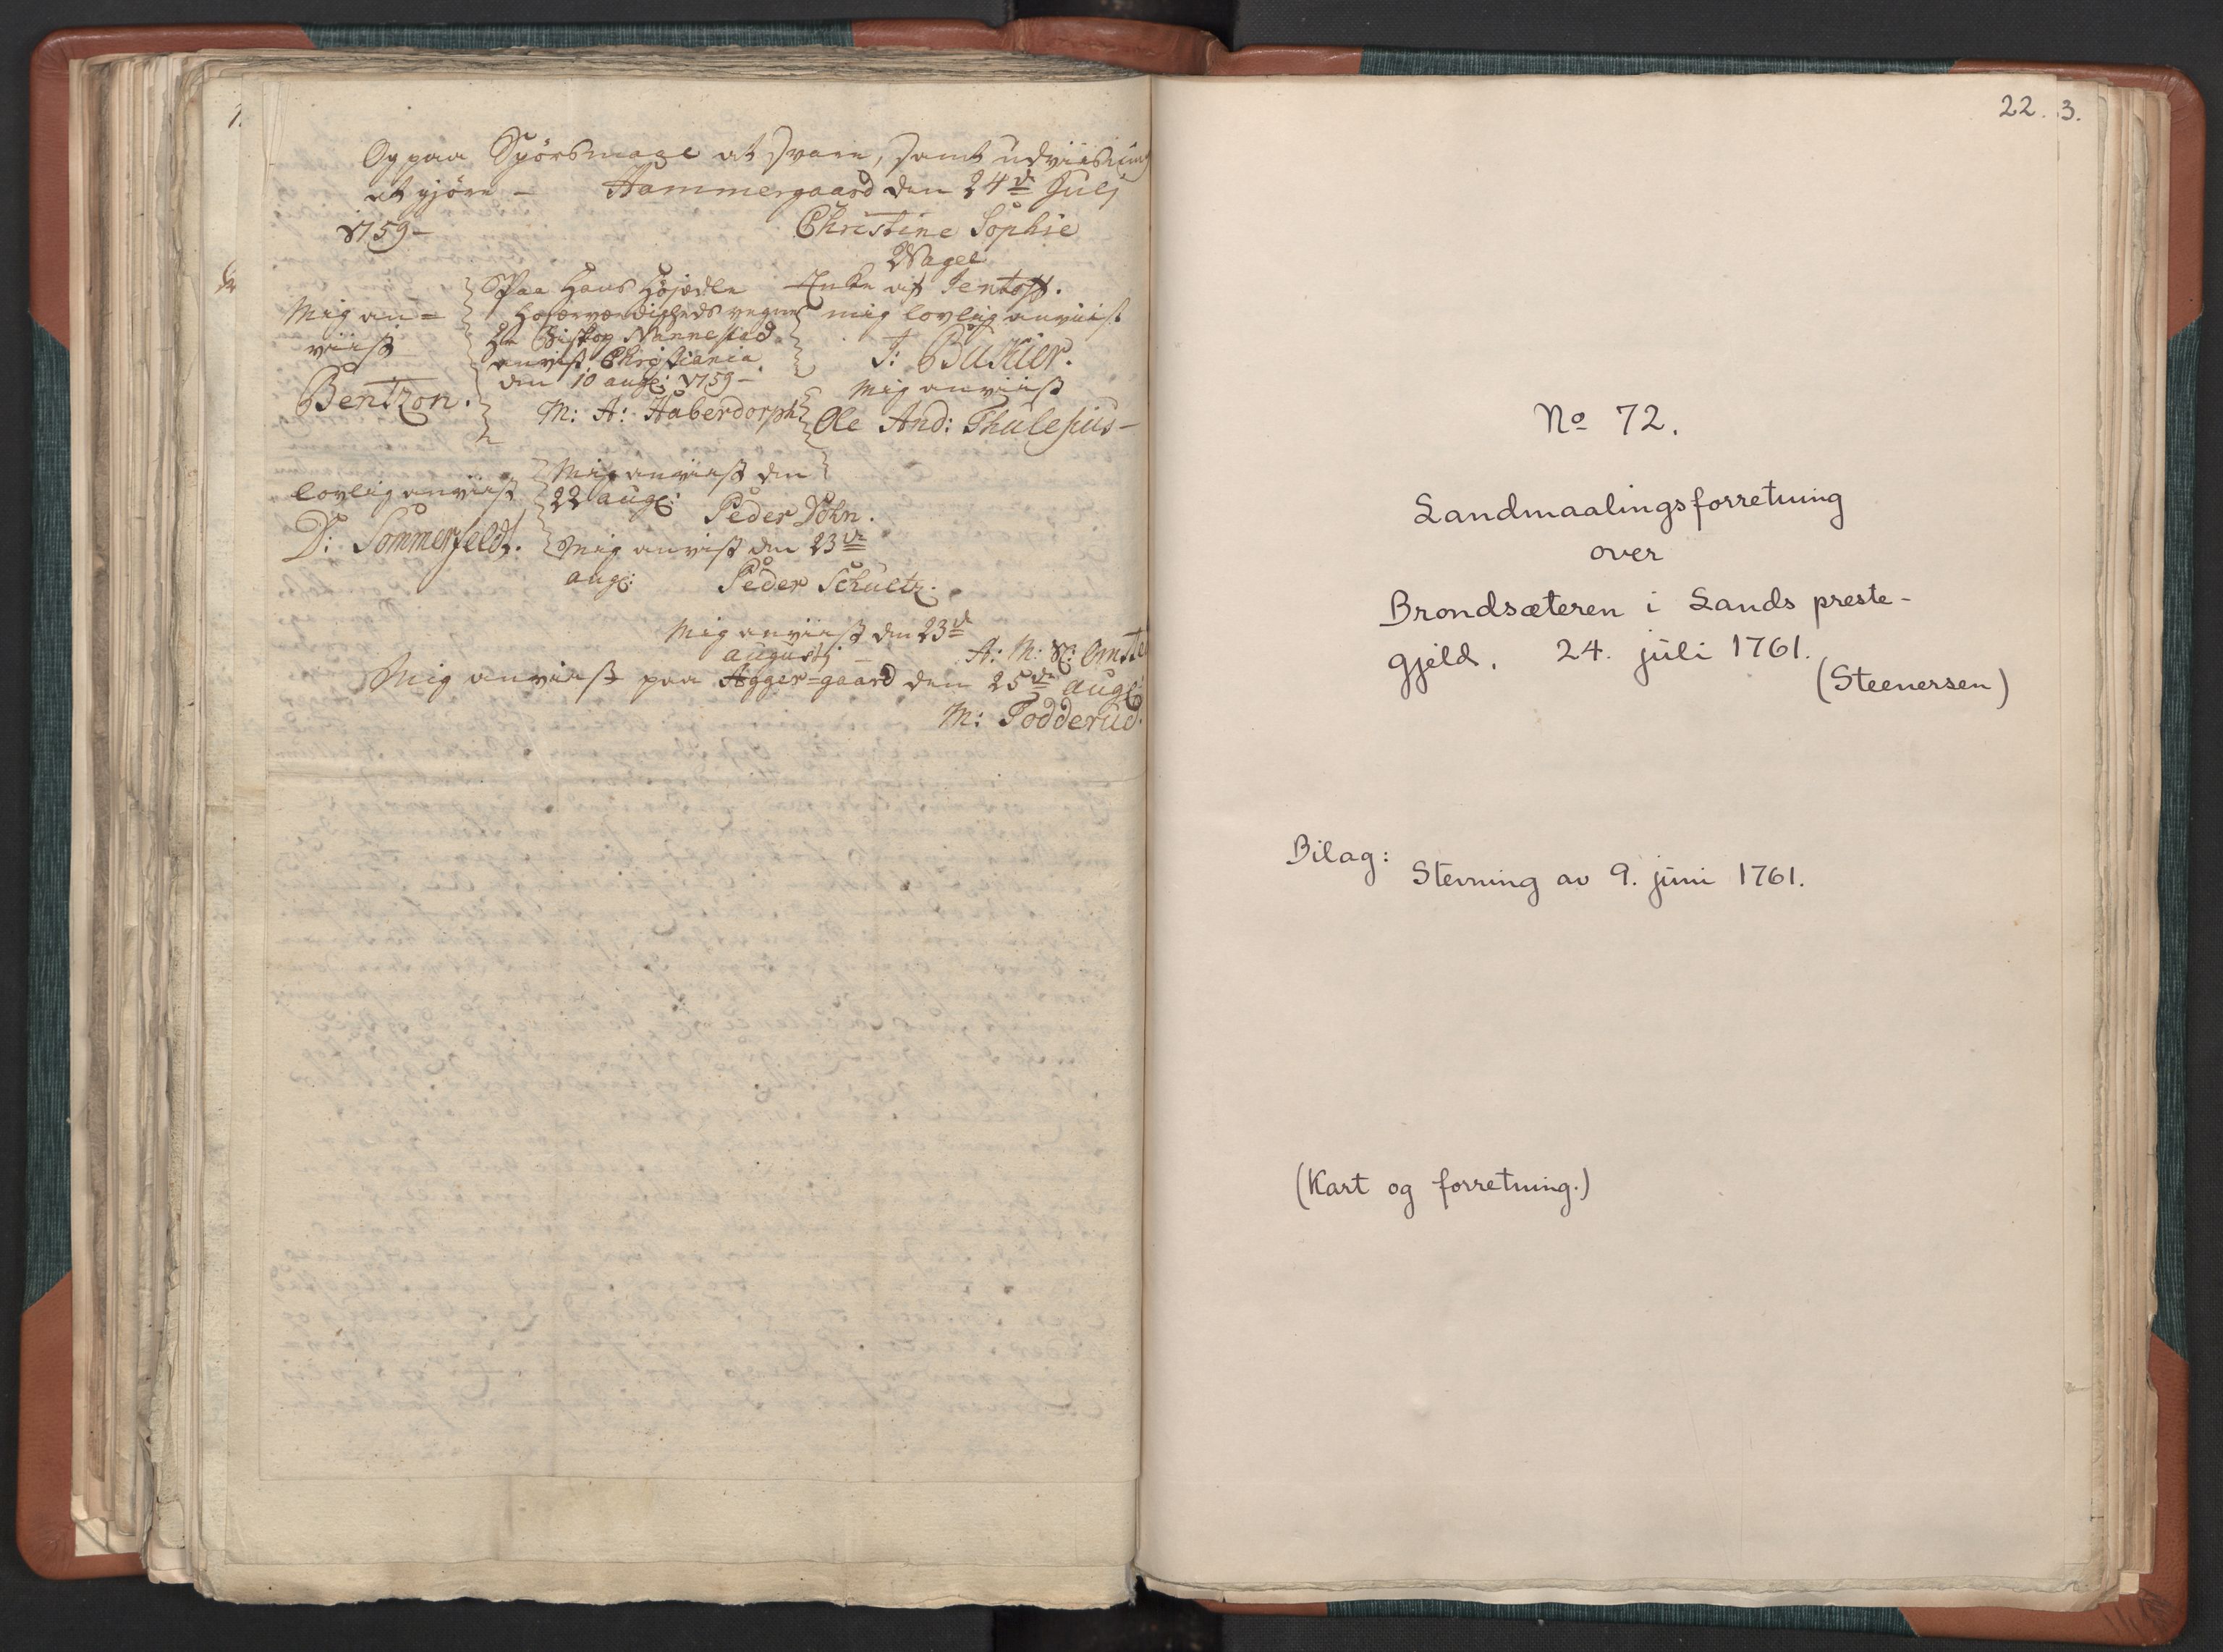 Og paa Spörsmaal at svare, samt udviisning
at gjöre – Hammergaard den 24de Julj
1759– Christine Sophie
Wagel
Enke aft Jentoft.
Mig an=
viist
Bentzon.
Paa Hans Höjædle
Höÿærværdigheds vegne
Hr Biskop Nannestad
anvist, Christiania
den 10 augt: 1759–
M: A: Haberdorph
mig lovlig anviist
F: Büklier.
Mig anviist
Ole And: Thulesius–
lovlig anviist
D: Sommerfeldt.
Mig anviist den
22 augt: Peder Dohn.
Mig anvist den 23de
augt: Peder Schultz.
Mig anviist den 23de
augustj – A: M: Sc:
Mig anviist paa Agger=gaard den 25de augt:
M: Fodderud.
22. 3.
No 72.
Landmaalingsforretning
over
Brondsæteren i Lands preste-
gjeld, 24. juli 1761.
(Steenersen)
Bilag:
Stevning av 9. juni 1761.
(Kart og forretning.)